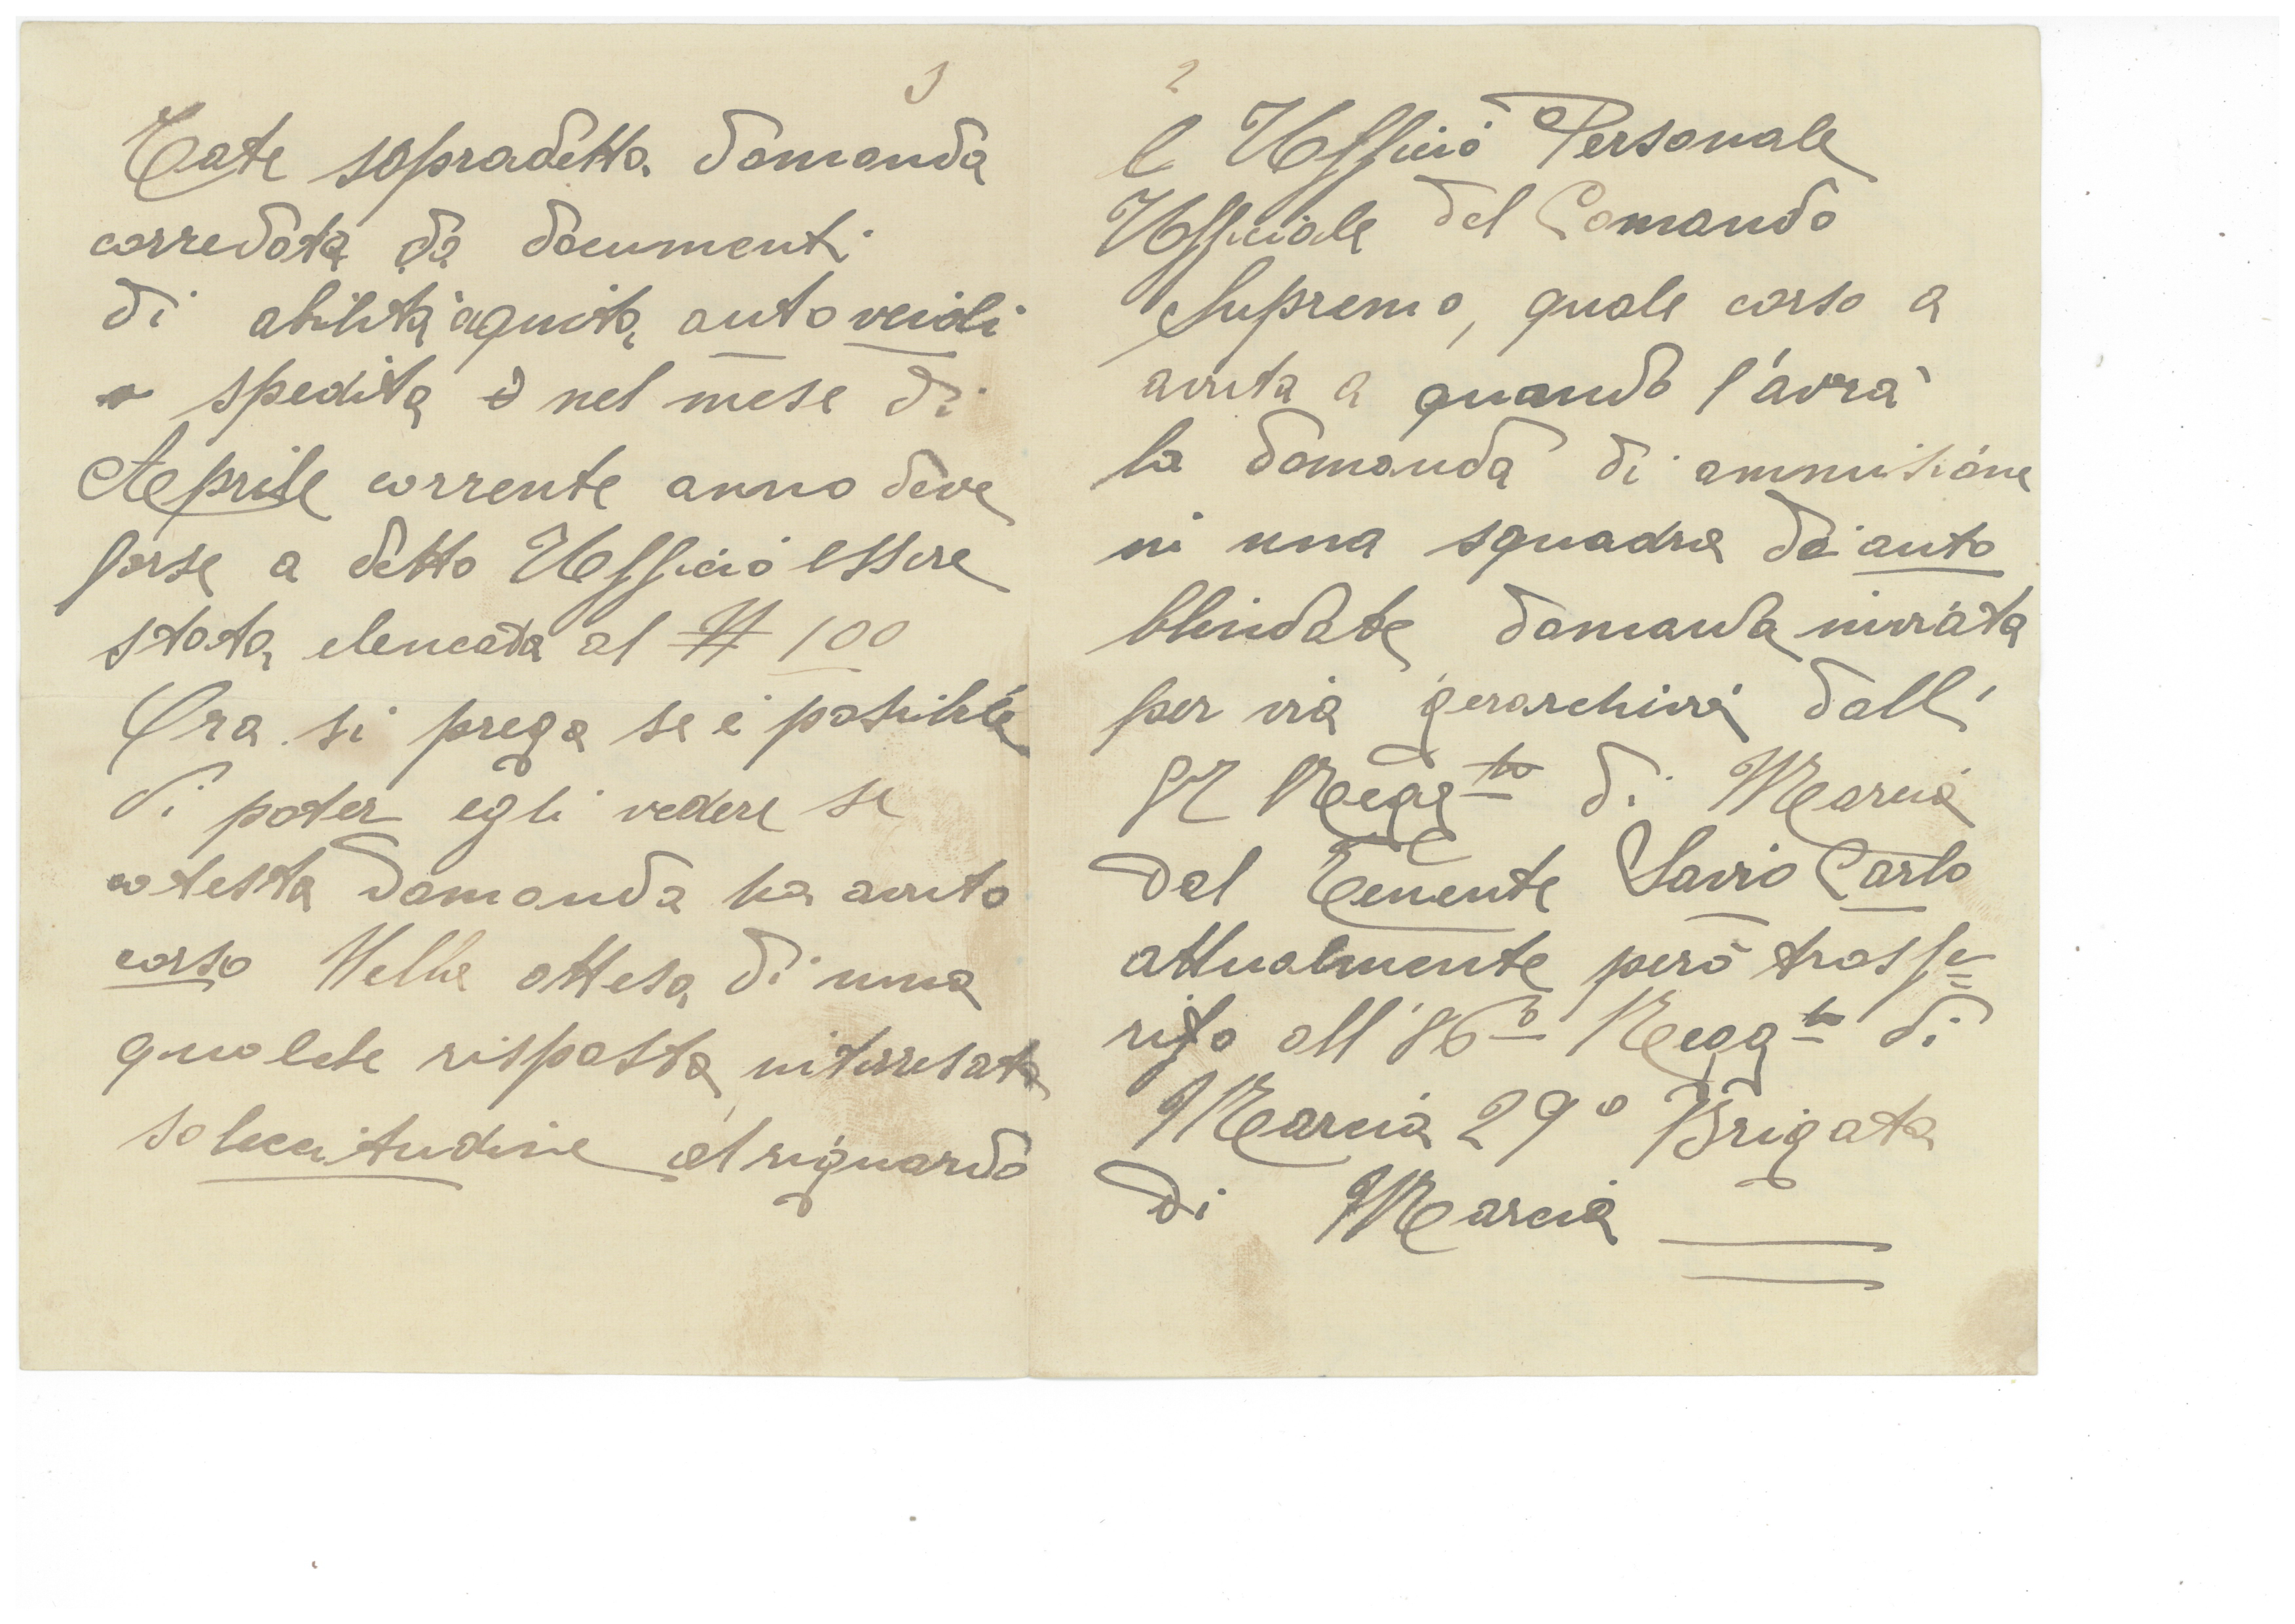 3
Tate sopradetta domanda
corredata da documenti
di abilità aquita autoveicoli
spedita nel mese di
Aprile corrente anno deve
forse a detto Ufficio essere
stata elencata al N 100
Ora si prega se è possibile
di poter egli vedere se
cotesta domanda ha avuto
corso Nella attesa di una
qualche risposta interresata
solecitudine al riguardo
2
l Ufficio Personale
Ufficiale del Comando
Supremo, quale corso a
avuta a quando l'avrà
la domanda di ammisione
in una squadra di auto
blindate domanda inviata
per via gerarchica dall'
Regg.to di Marcia
dal Tenente Savio Carlo
attualmente però trasfe=
rito all'86º Regg.to di
Marcia 29º Brigata
di Marcia